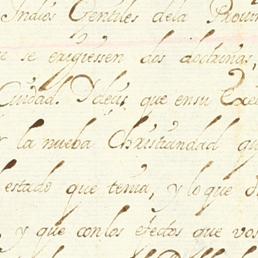 Indios Gentiles dela Provin
se se exigiessen dos doctrinas,
Ciudad. Ideas, que en su Exc
la nueba Christiandad qu
estado que tenia, y lo que
y que con los efectos que vos